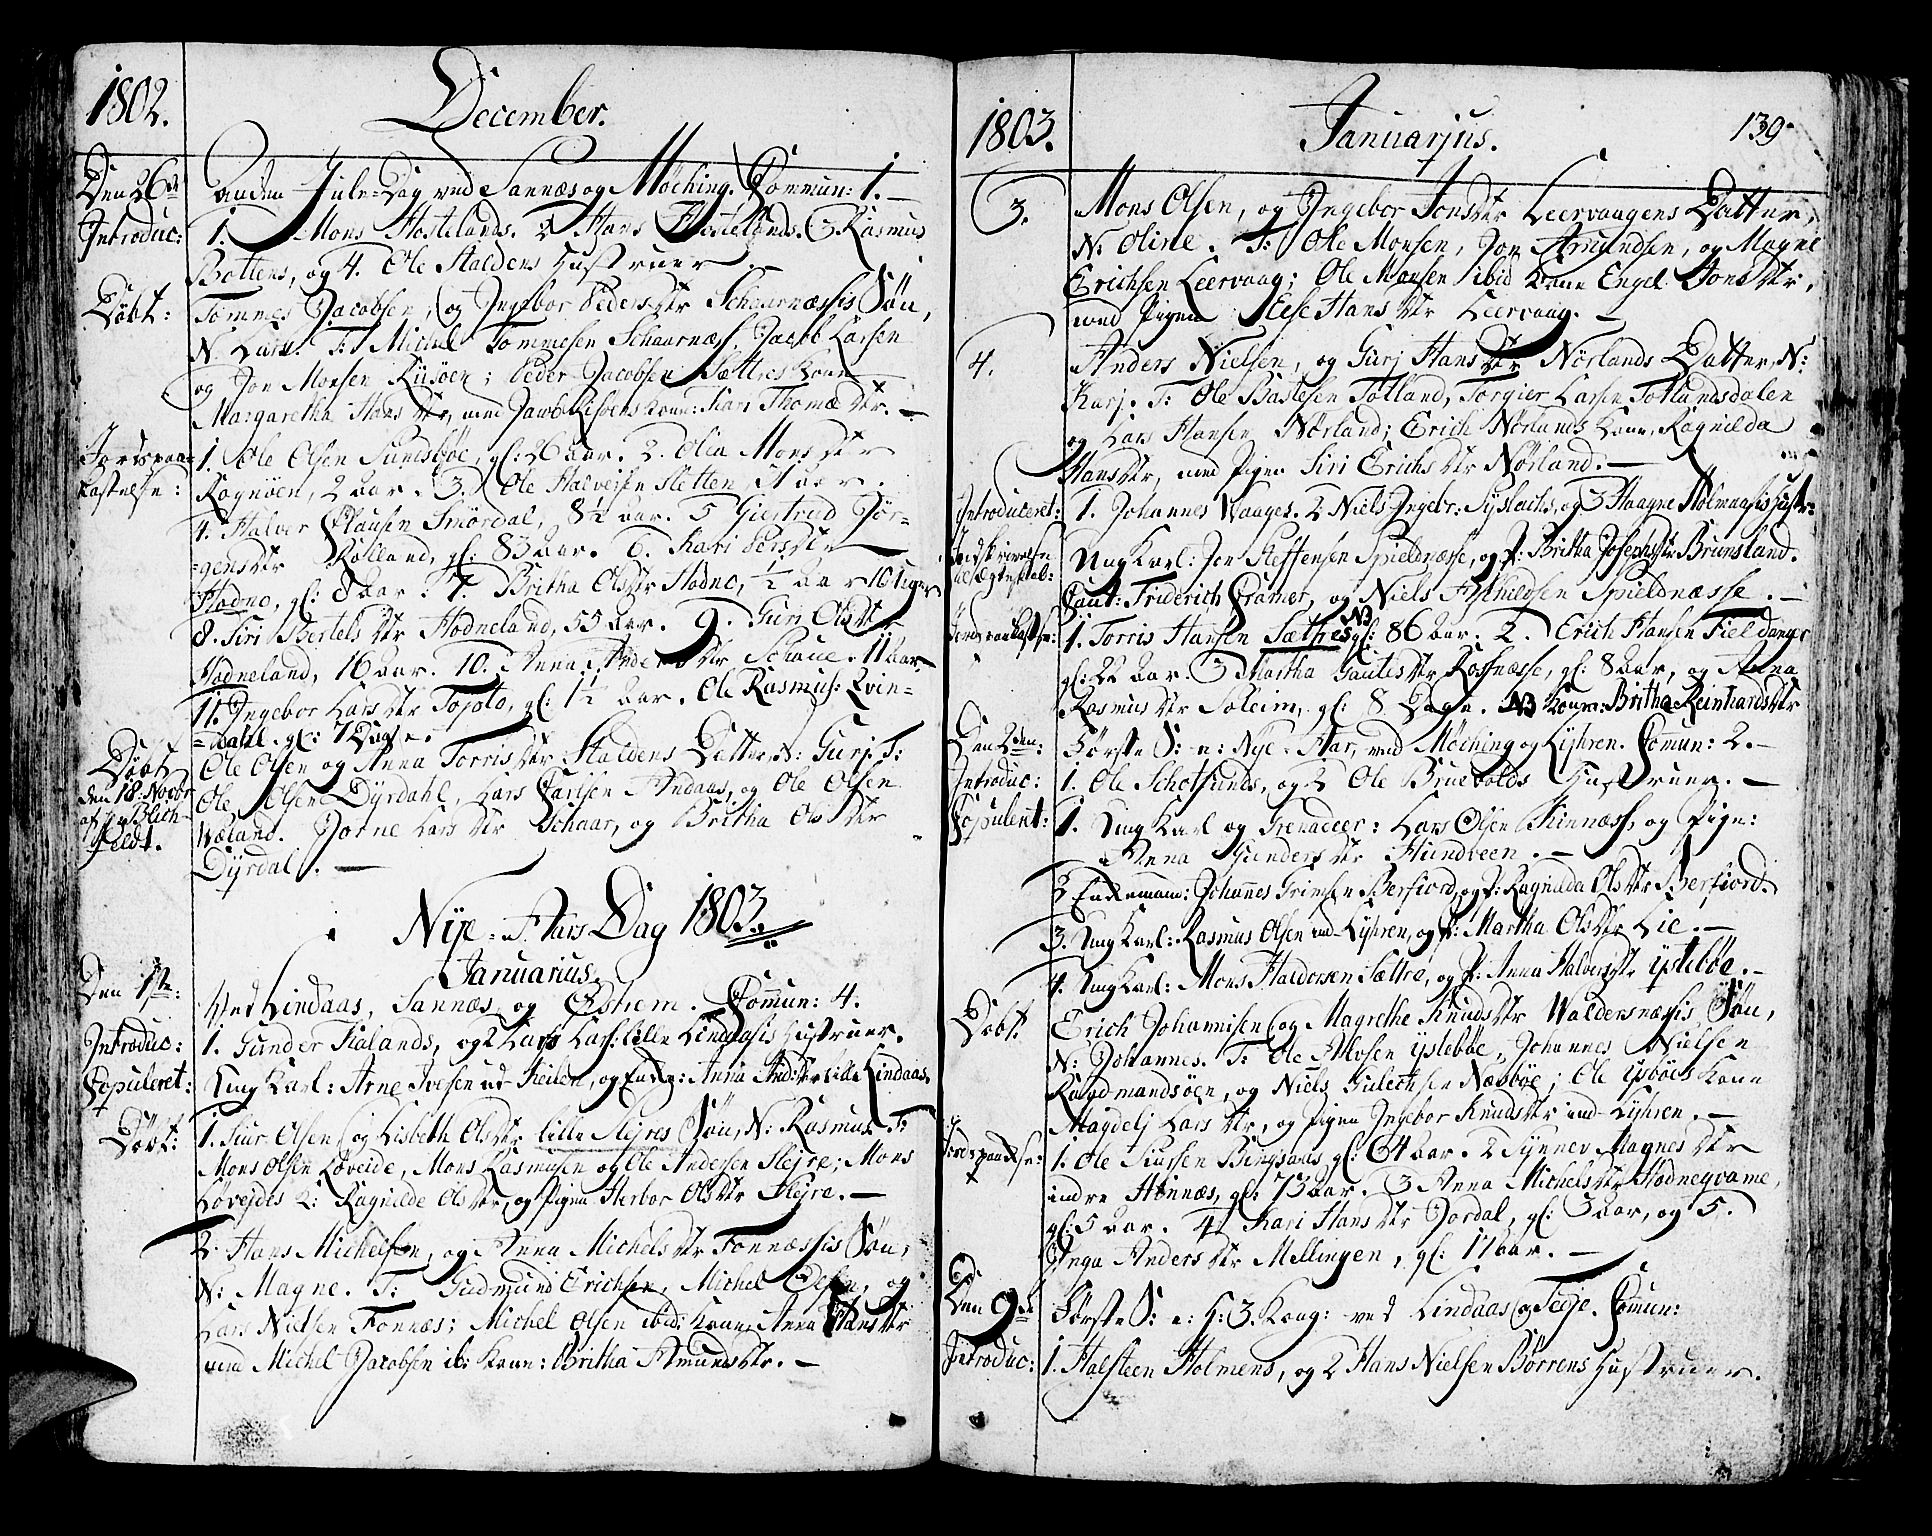 1802.
December.
Den 26de
Anden Jule-Dag ved Sannæs og Møching. Commun: 1.
Introduc:
1. Mons Hostelands. 2 Hans Hostelands. 3 Rasmus
Bottens, og 4. Ole Staldens Hustruer
Døbt:
Tommes Jacobsen, og Ingebor Peders dtr Schaarnæssis Søn,
N. Lars. T: Michel Tommesen Schaarnæs, Jacob Larsen
og Jon Monsen Riisøen; Peder Jacobsen Sættres Kone
Margaretha Hans dtr, med Jacob Kone: Kari Thomæ dtr.
Jordspaa-
kastelse:
1. Ole Olsen Sundsbøe, gl: 26 aar. 2. Olia Mons dtr
Rognøen, 2 aar. 3. Ole Halversen Sletten, 1 aar.
4. Halver Clausen Smørdal, 8½ aar. 5 Giertrud Jør-
-gens dtr Kolland, gl: 83 aar. 6. Kari Pers dtr
Hodne, gl: 8 aar. 7. Britha Ols dtr Hodne, ½ aar 16 uger
8. Siri Bertels dtr Hodneland, 55 aar. 9. Guri Ols dtr
Hodneland, 16 aar. 10. Anna Anders dtr Schaue. 11 aar
11. Ingebor Lars dtr Topto, gl: 1½ aar. Ole Rasmus: Qvin-
=dahl. gl: 7 Dage.
Døbt
den 18: Novbr
af Hr Blich-
feldt.
Ole Olsen og Anna Torris dtr Staldens Datter, N: Gurj. T:
Ole Olsen Dyrdahl, Lars Carlsen Andaas, og Ole Olsen
Wæland. Jorne Lars dtr Schaar, og Britha Ols dtr
Dyrdal.
Nye-Aars Dag 1803.
Januarius.
Den 1ste:
Ved Lindaas, Sannæs og Østrem. Commun: 4.
Introduc:
1. Gunder Kalands, og 2 Lars Lars: lille Lindaasis Hustruer.
Copuleret:
Ung Karl: Arne Ivesen ud-Keilen, og Enke: Anna And: dtr lille Lindaas.
Døbt:
1. Siur Olsen og Lisbeth Ols dtr lille Slejres Søn, N: Rasmus. T:
Mons Olsen Løveide, Mons Rasmusen og Ole Andersen Slejre; Mons
Løvejdes K: Ragnilde Ols dtr, og Pigen Herbor Ols dtr Slejre.
2. Hans Michelsen, og Anna Michels dtr Fonnæssis Søn,
N: Magne. T: Gudmund Erichsen, Michel Olsen, og
Lars Nielsen Fonnæs; Michel Olsen ibid: Kone Anna Hans dtr
med Michel Jacobsen ib: Kone: Britha Amunds dtr.
1803.
Januarjus.
139
3.
Mons Olsen, og Ingebor Jons dtr Leervaagens Datter,
N: Oline. T: Ole Monsen, Jon Amundsen, og Magne
Erichsen Leervaag; Ole Monsen ibid Kone Engel Jons dtr,
med Pigen Elese Hans dtr Leervaag.
4.
Anders Nielsen, og Gurj Hans dtr Nørlands Datter, N:
Karj. T: Ole Bastesen Totland, Torgier Larsen Totlandsdalen
og Lars Hansen Nørland; Erich Nørlands Kone, Ragnilda
Hans dtr, med Pigen Siri Erichs dtr Nørland.
Introduceret:
1. Johannes Waages. 2 Niels Ingebr: Syslachs, og 3 Haagne Holmaasis Hustr:
Indskrivelse
til Ægteskab:
Ung Karl: Jon Steffensen Spieldnæsse, og P: Britha Josephs dtr Brunsland.
Caut: Friderich Cramer, og Niels Askildsen Spieldnæsse.
Jordspaakastse:
1. Torris Hansen Sæthre NB gl: 86 aar. 2. Erich Hansen Fieldanger
gl: 22 aar. 3 Martha Gautes dtr Rossnæsse, gl: 8 aar, og Anna
Rasmus dtr Soleim, gl: 8 Dage. NB Kone: Britha Reinhards dtr
Den 2den:
Første S: e: Nye-Aar, ved Møching og Lyhren. Commun: 2.
Introduc:
1. Ole Schotsunds, og 2 Ole Bruevolds Hustruer.
Copulent:
1. Ung Karl og Grenadeer: Lars Olsen Kinnæss, og Pige:
Anna Gunders dtr Hundveen.
2 Enkemand: Johannes Grimsen Berfiord, og P: Ragnilda Ols dtr Berfiord.
3. Ung Karl: Rasmus Olsen ud-Lyhren, og P: Martha Ols dtr Lie.
4. Ung Karl: Mons Haldorsen Sættre, og P: Anna Halvers dtr Ystebøe.
Døbt.
Erich Johannisen og Magrethe Knuds dtr Waldersnæssis Søn,
N: Johannes. T: Ole Alvsen Ystebøe, Johannes Nielsen
Raudmandsøen, og Niels Gulechsen Næsbøe; Ole Ysbøes Kone
Magdelj Lars dtr, og Pigen Ingebor Knuds dtr ind-Lyhren.
Jordspaakse:
1. Ole Siursen Bingsaas, gl: 64 aar. 2 Synnev Magnes dtr
indre Hønnæs, gl: 73 aar. 3 Anna Michels dtr Hodneqvame,
gl: 5 aar. 4. Kari Hans dtr Jordal, gl: 3 aar, og 5.
Inga Anders dtr Mellingen, gl: 17 aar.
Den 9de
Første S: e: H: 3. Kong: ved Lindaas og Seeje. Comun:
Introduc:
1. Halsteen Holmens, og 2 Hans Nielsen Børrens Hustruer.